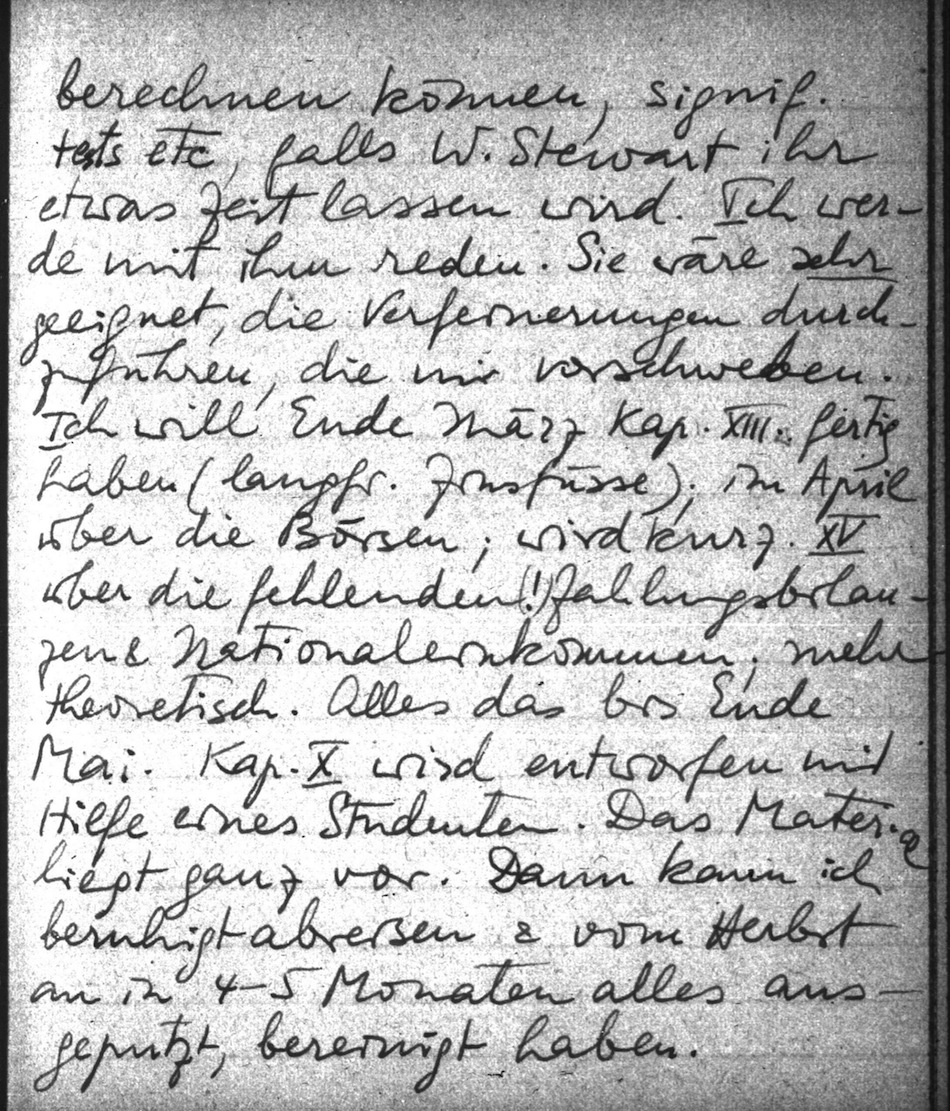 berechnen können, signif.
tests etc, falls W. Stewart ihr
etwas Zeit lassen wird. Ich wer-
de mit ihm reden. Sie wäre sehr
geeignet, die Verfeinerungen durch-
zuführen, die mir vorschweben.
Ich will Ende März Kap. XIII. fertig
haben (langfr. Zinsfüsse); im April
über die Börsen; wird kurz. XV
über die fehlenden (!) Zahlungsbilan-
zen & Nationaleinkommen; mehr
theoretisch. Alles das bis Ende
Mai. Kap. X wird entworfen mit
Hilfe eines Studenten. Das Material
liegt ganz vor. Dann kann ich
beruhigt abreisen & vom Herbst
an in 4-5 Monaten alles aus-
geputzt, bereinigt haben.